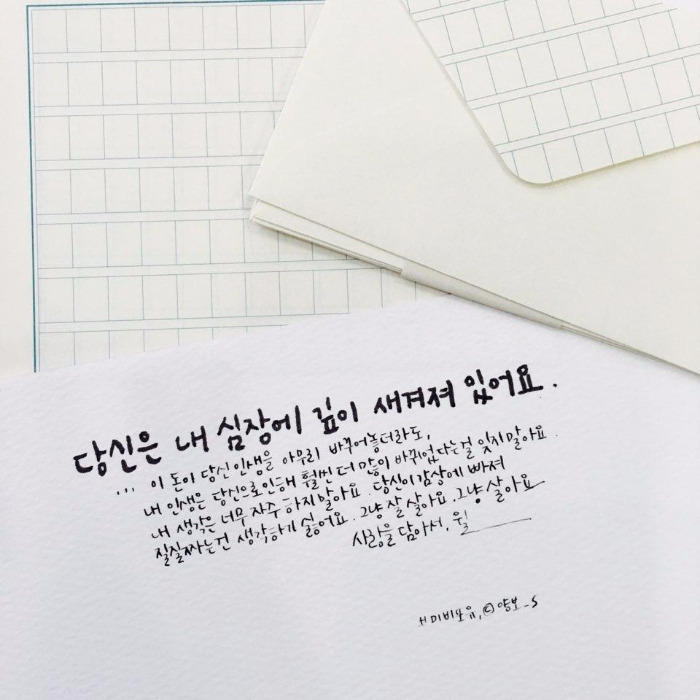 당신은 내 심장에 깊이 새겨져 있어요.
... 이 돈이 당신 인생을 아무리 바꾸어놓더라도,
내 인생은 당신으로 인해 훨씬 더 많이 바뀌었다는걸 잊지 말아요.
내 생각은 너무 자주 하지 말아요. 당신이 감상에 빠져
질질짜는건 생각하기 싫어요. 그냥 잘 살아요. 그냥 살아요
사랑을 담아서, 윌
#미비포유, ⓒ양보_S